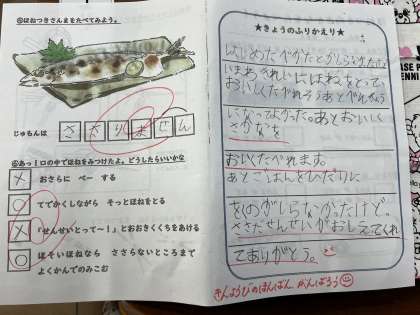 ⑤ほねつきさんまをたべてみよう。
じゅんは
さ
さ
り
ま
せ
ん
⑥あっ！口の中でほねをみつけたよ。どうしたらいいかな
× おさらに ぺー する
○ てでかくしながら そっとほねをとる
× 「せんせいとって～！」とおおきくくちをあける
○ ほそいほねなら ささらないところまで
よくかんでのみこむ
★きょうのふりかえり★
はじめたべかたと
いまわきれいにほねをとって、
おいしくたべれそう
よかった。あとおいしく
さかなを
おいしくたべれます。
あとごはんをひだりに
をくのがしらなかったけど。
ささだせんせいがおしえてくれ
てありがとう。
きんようびのほんばん がんばろう